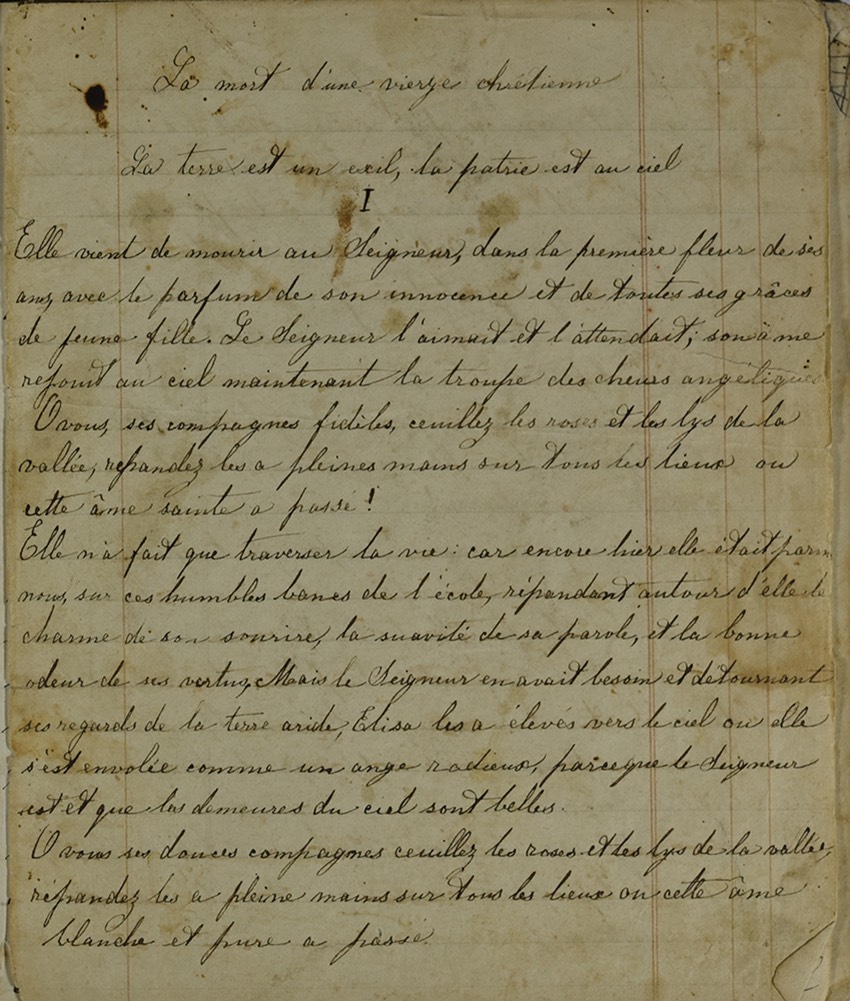 La mort d'une vierge chrétienne
La terre est un exil, la patrie est au ciel
I
Elle vient de mourir au Seigneur, dans la première fleur de ses
ans, avec le parfum de son innocence et de toutes ses grâces
de jeune fille. Le Seigneur l'aimait et l'attendait; son âme
rejoint au ciel maintenant la troupe des chœurs angéliques
O vous, ses compagnes fidèles, ceuillez les roses et les lys de la
vallée, répandez les a pleines mains sur tous les lieux ou
cette âme sainte a passé!
Elle n'a fait que traverser la vie: car encore hier elle était parmi
nous, sur ces humbles bancs de l'école, répandant autour d'elle le
charme de son sourire, la suavité de sa parole, et la bonne
odeur de ses vertus, Mais le Seigneur en avait besoin et détournant
ses regards de la terre aride, Elisa les a élevés vers le ciel ou elle
s'est envolée comme un ange radieux, parceque le Seigneur
est et que les demeures du ciel sont belles.
O vous ses douces compagnes ceuillez les roses et les lys de la vallée,
répandez les a pleine mains sur tous les lieux ou cette âme
blanche et pure a passé.